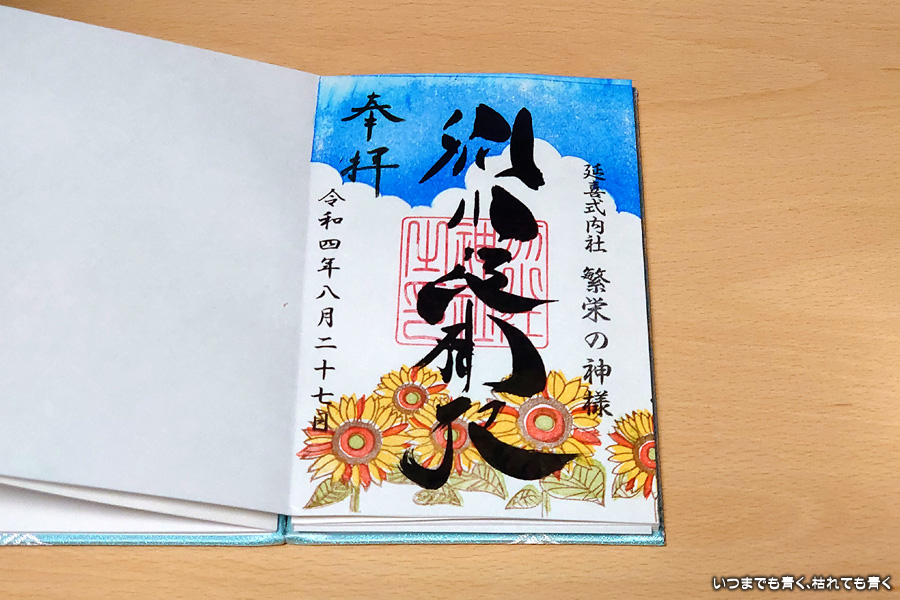 延喜式内社 繁栄の神様
別小江神社
奉拝
令和四年八月二十七日
いつまでも青く、枯れても青く